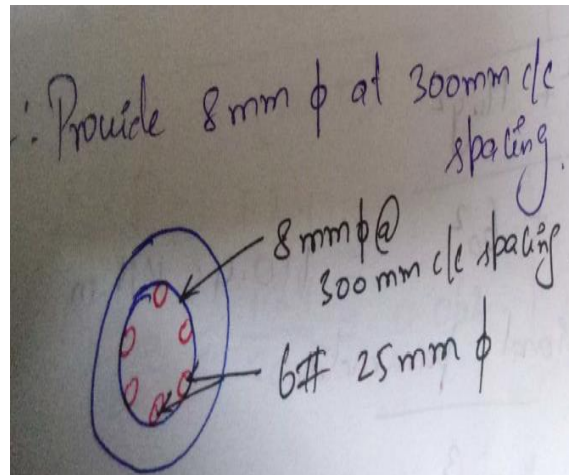 ∴ Provide 8mm ϕ at 300mm c/c
spacing.
8mmϕ@
300mm c/c spacing
6# 25mm ϕ